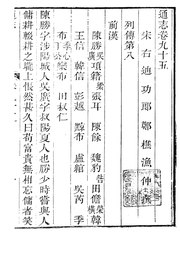 通志卷九十五
宋右迪功郎鄭樵漁仲撰
列傳第八
前漢
陳勝 吳廣 項籍 張耳 陳餘 魏豹 田儋 韓
王信 韓信 彭越 黥布 盧綰 吳芮 季
布 欒布 田叔
陳勝字涉陽城人吳廣字叔陽夏人也勝少時嘗與人
傭耕輟耕之壟上悵然甚久曰苟富貴無相忘傭者笑